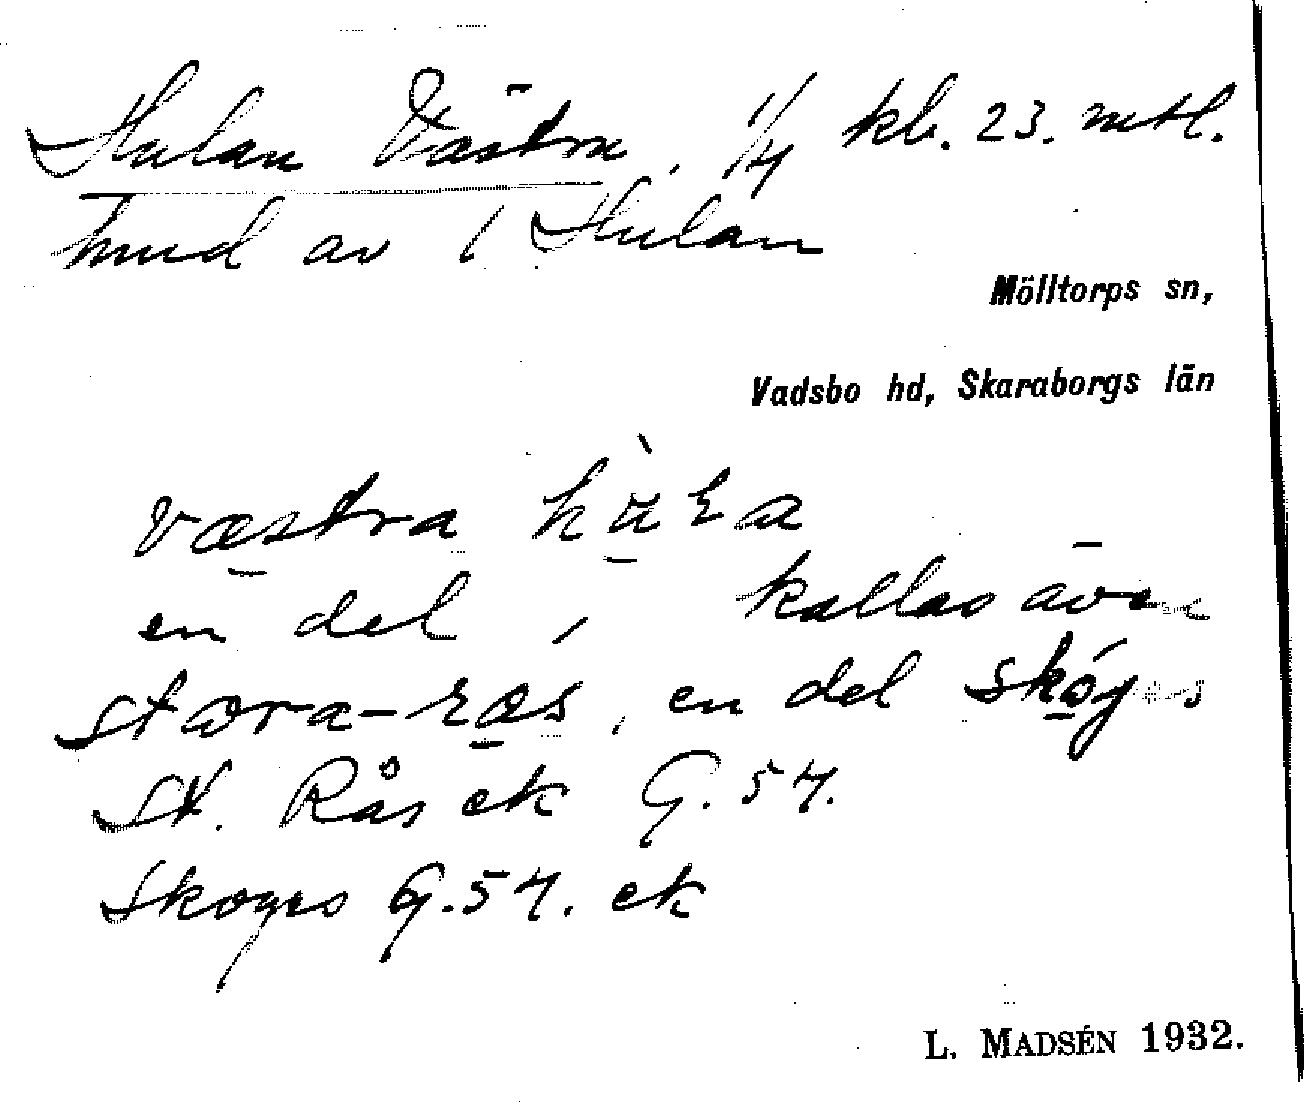 Hulan Västra, 1/4 kb. 23. mtl.
hmd av 1 Hulan
Mölltorps sn,
Vadsbo hd, Skaraborgs län
væstra
en del, kallas även
en del
St. Rås ek G. 54.
Skogs G. 54. ek
L. MADSÉN 1932.